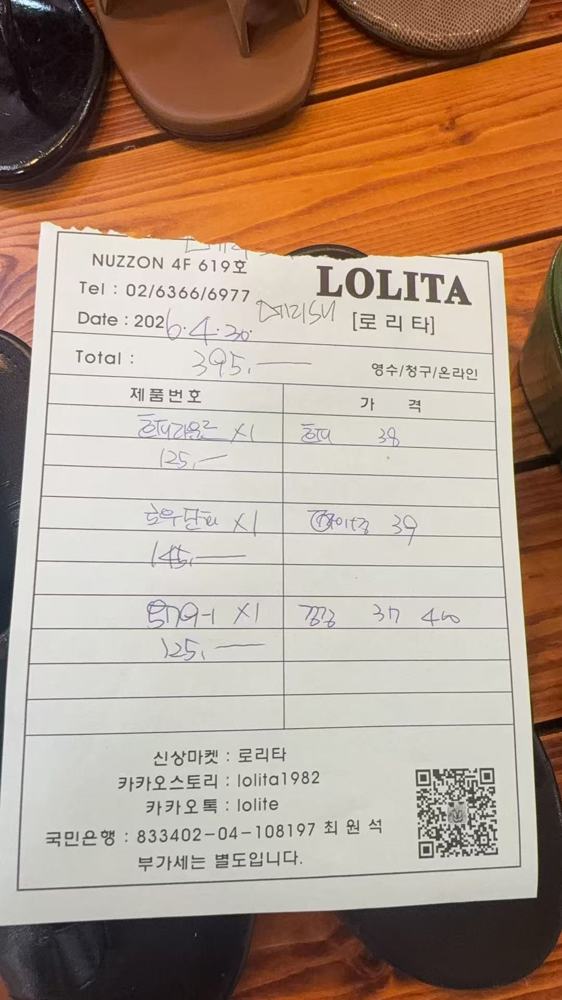 NUZZON 4F 619호
LOLITA
Tel : 02/6366/6977
[로리타]
Date : 2026.4.30.
Total : 395,—
영수/청구/온라인
제품번호
가 격
x1
38
125,—
x1
39
145,—
579-1 x1
37
125,—
신상마켓 : 로리타
카카오스토리 : lolita1982
카카오톡 : lolite
국민은행 : 833402-04-108197 최 원 석
부가세는 별도입니다.